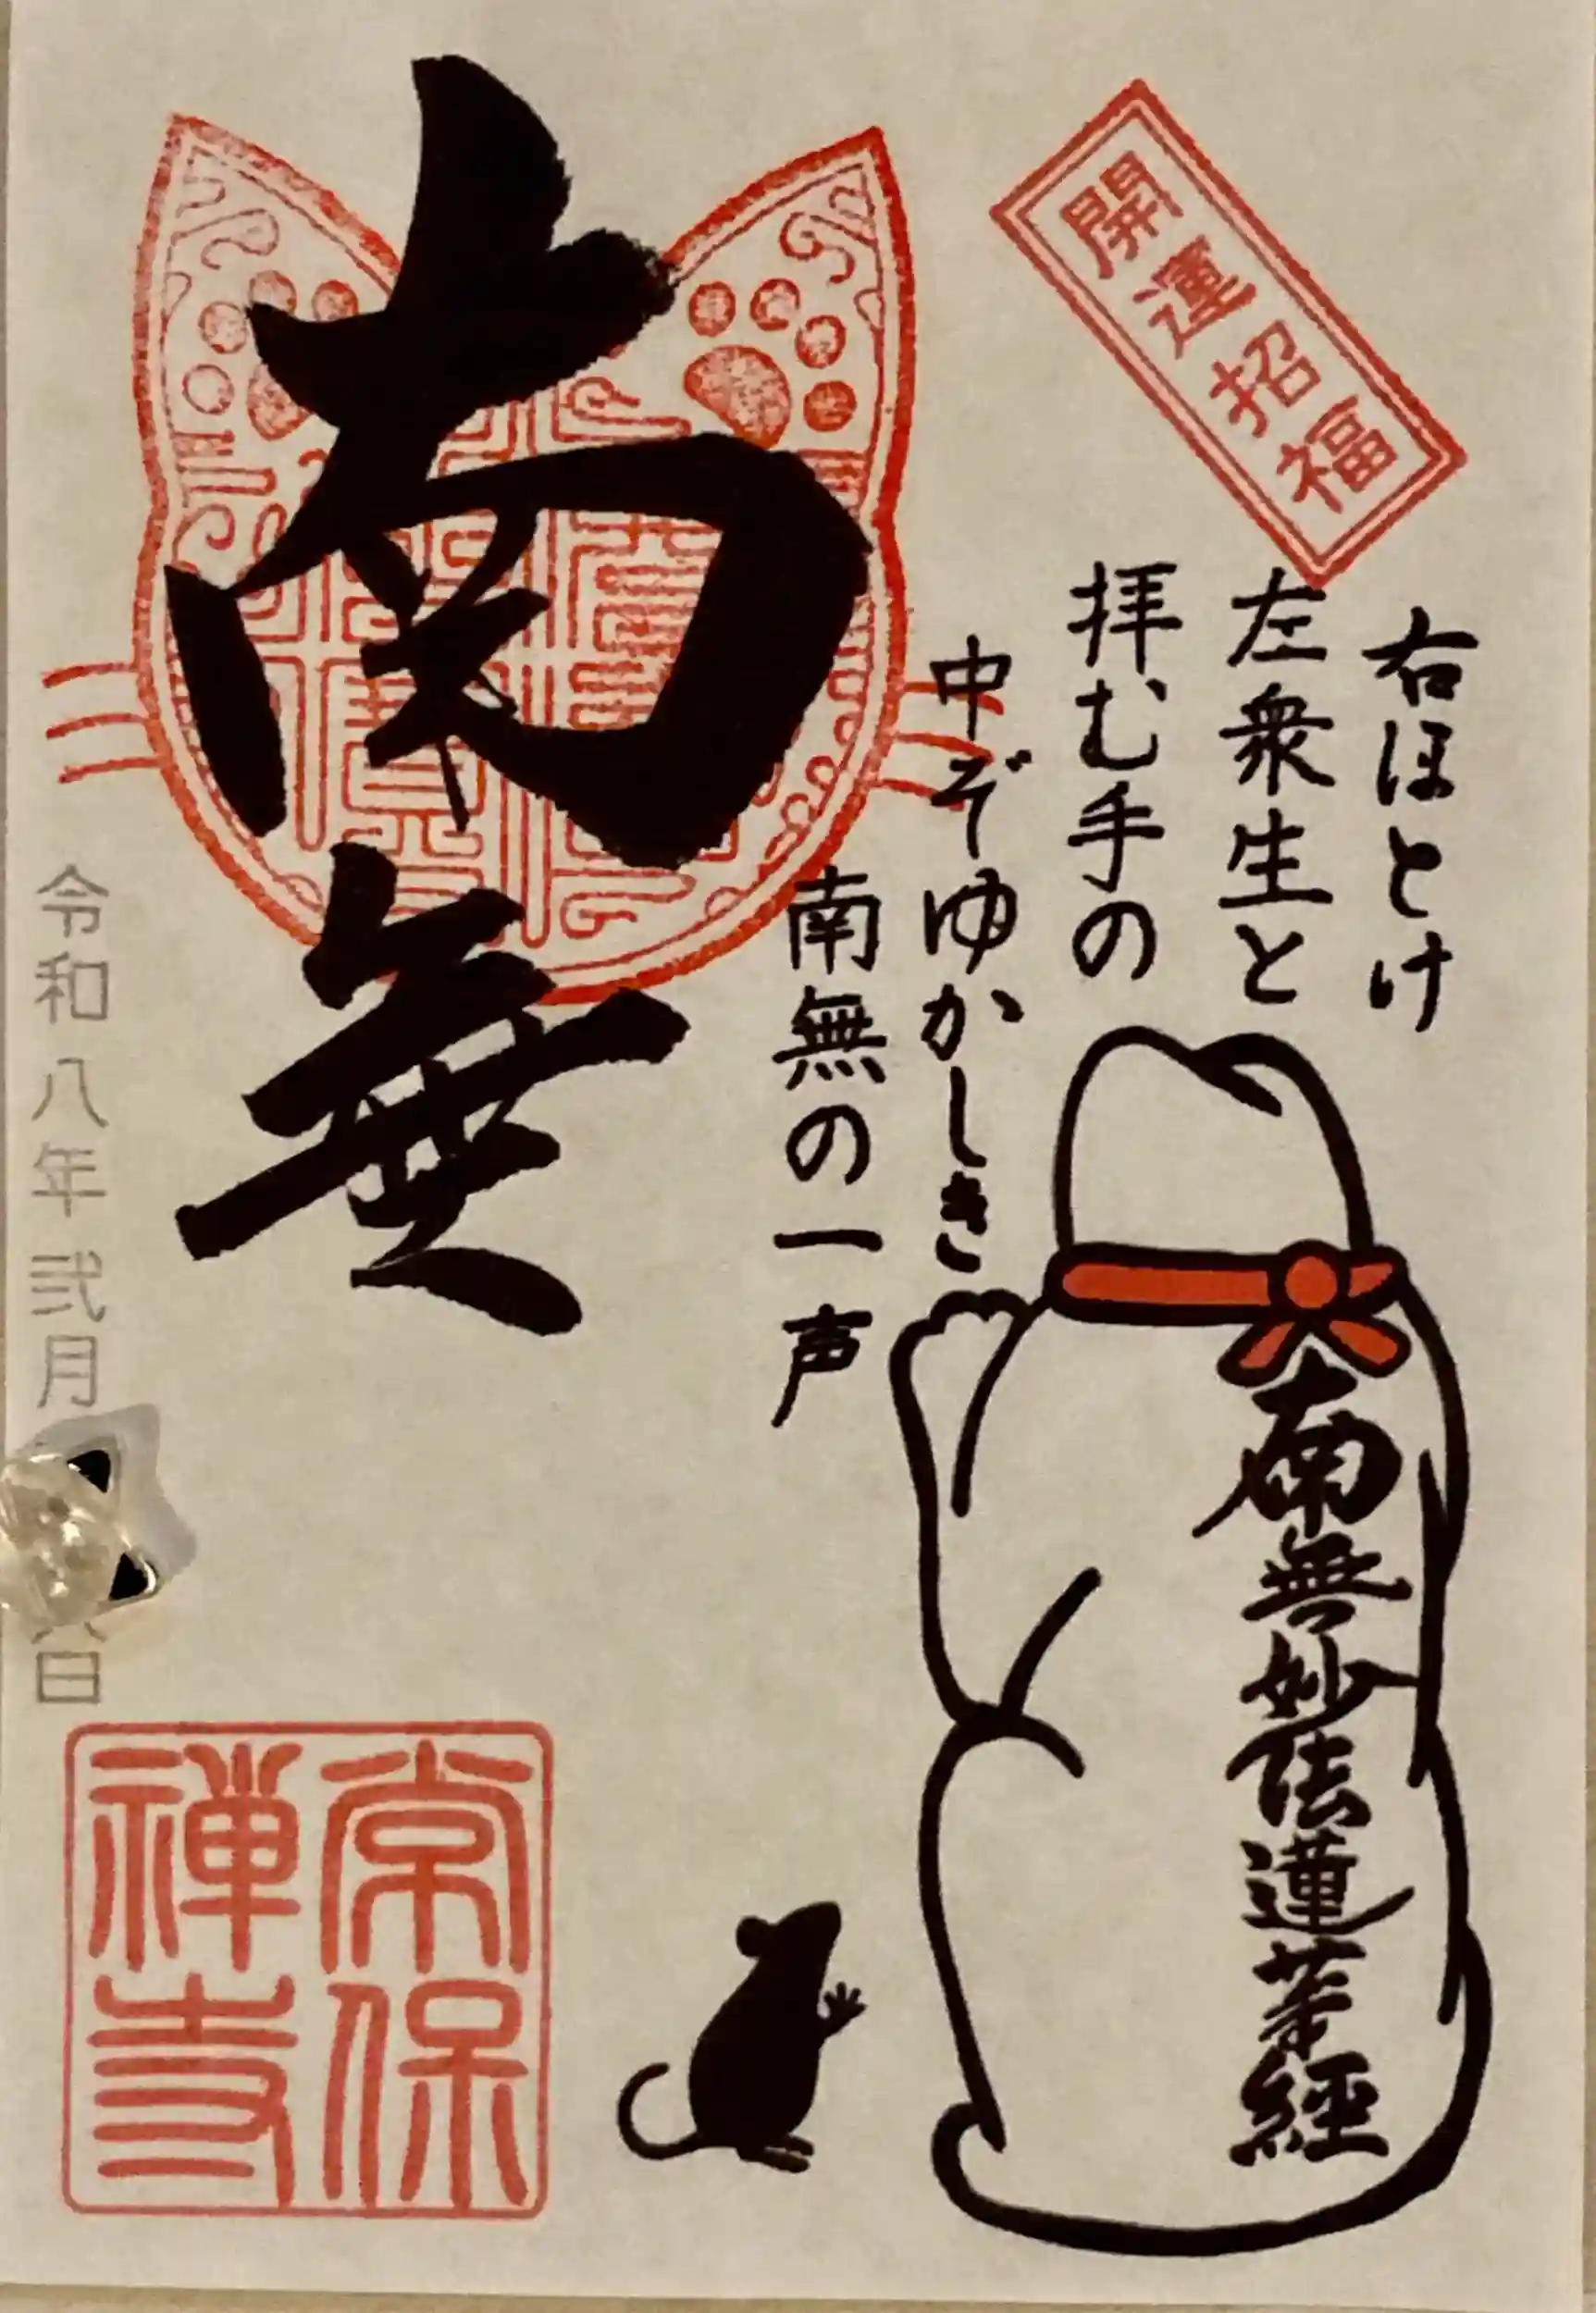 開運招福
右ほとけ
左衆生と
拝む手の
中ぞゆかしき
南無の一声
南無妙法蓮華経
南無
令和八年弐月
日
常保
禅寺